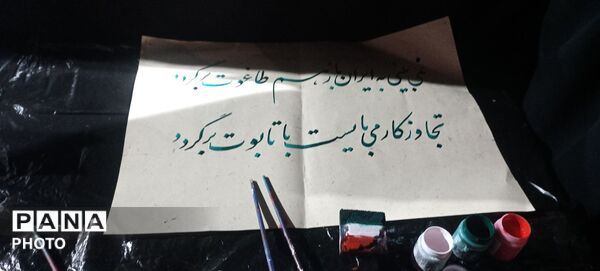 نمی‌بینی به ایران باز هم رسم طاغوت برگردد
تجاوزکار می‌بایست با تابوت برگردد
PANA
PHOTO